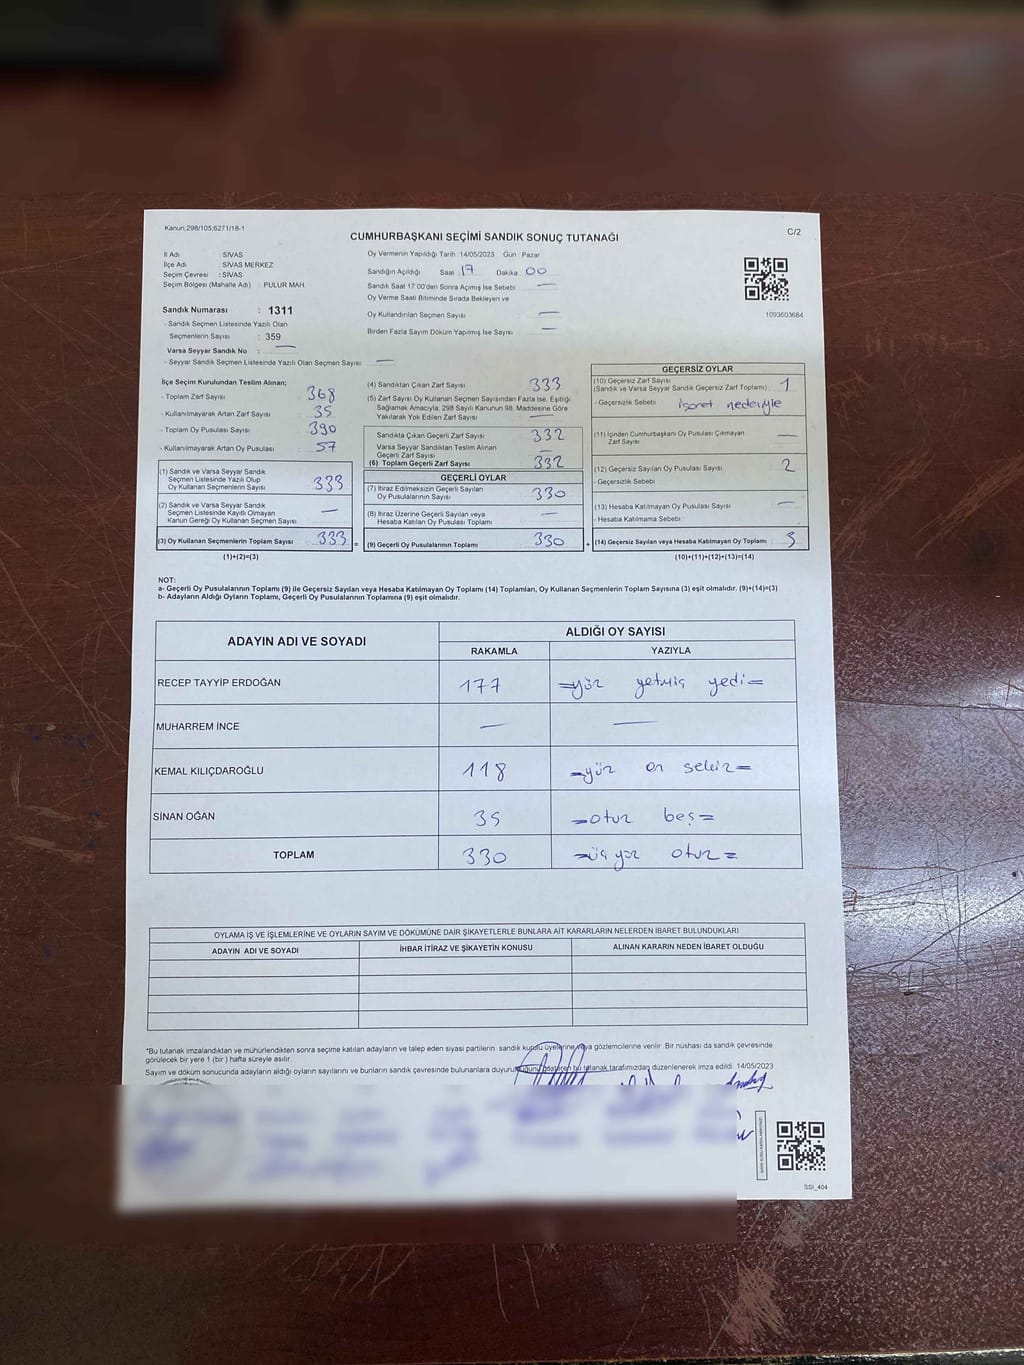 Kanun;298/105,6271/18-1
C/2
CUMHURBAŞKANI SEÇİMİ SANDIK SONUÇ TUTANAĞI
İl Adı : SİVAS
İlçe Adı : SİVAS MERKEZ
Seçim Çevresi : SİVAS
Seçim Bölgesi (Mahalle Adı) : PULUR MAH.
Sandık Numarası : 1311
- Sandık Seçmen Listesinde Yazılı Olan
Seçmenlerin Sayısı : 359
Varsa Seyyar Sandık No : —
- Seyyar Sandık Seçmen Listesinde Yazılı Olan Seçmen Sayısı —
Oy Vermenin Yapıldığı Tarih :14/05/2023 Gün : Pazar
Sandığın Açıldığı Saat 17 Dakika 00
Sandık Saat 17:00'den Sonra Açımış İse Sebebi —
Oy Verme Saati Bitiminde Sırada Bekleyen ve
Oy Kullandırılan Seçmen Sayısı —
Birden Fazla Sayım Döküm Yapılmış İse Sayısı —
1093603684
İlçe Seçim Kurulundan Teslim Alınan;
- Toplam Zarf Sayısı 368
- Kullanılmayarak Artan Zarf Sayısı 35
- Toplam Oy Pusulası Sayısı 390
- Kullanılmayarak Artan Oy Pusulası 57
(1) Sandık ve Varsa Seyyar Sandık
Seçmen Listesinde Yazılı Olup
Oy Kullanan Seçmenlerin Sayısı 333
(2) Sandık ve Varsa Seyyar Sandık
Seçmen Listesinde Kayıtlı Olmayan
Kanun Gereği Oy Kullanan Seçmen Sayısı —
(3) Oy Kullanan Seçmenlerin Toplam Sayısı 333 =
(1)+(2)=(3)
(4) Sandıktan Çıkan Zarf Sayısı 333
(5) Zarf Sayısı Oy Kullanan Seçmen Sayısından Fazla İse, Eşitliği
Sağlamak Amacıyla, 298 Sayılı Kanunun 98. Maddesine Göre
Yakılarak Yok Edilen Zarf Sayısı —
Sandıkta Çıkan Geçerli Zarf Sayısı 332
Varsa Seyyar Sandıktan Teslim Alınan
Geçerli Zarf Sayısı —
(6) Toplam Geçerli Zarf Sayısı 332
GEÇERLİ OYLAR
(7) İtiraz Edilmeksizin Geçerli Sayılan
Oy Pusulalarının Sayısı 330
(8) İtiraz Üzerine Geçerli Sayılan veya
Hesaba Katılan Oy Pusulası Toplamı —
(9) Geçerli Oy Pusulalarının Toplamı 330 +
GEÇERSİZ OYLAR
(10) Geçersiz Zarf Sayısı
(Sandık ve Varsa Seyyar Sandık Geçersiz Zarf Toplamı) 1
- Geçersizlik Sebebi işaret nedeniyle
(11) İçinden Cumhurbaşkanı Oy Pusulası Çıkmayan
Zarf Sayısı —
(12) Geçersiz Sayılan Oy Pusulası Sayısı 2
- Geçersizlik Sebebi
(13) Hesaba Katılmayan Oy Pusulası Sayısı —
- Hesaba Katılmama Sebebi
(14) Geçersiz Sayılan veya Hesaba Katılmayan Oy Toplamı 3
(10)+(11)+(12)+(13)=(14)
NOT:
a- Geçerli Oy Pusulalarının Toplamı (9) ile Geçersiz Sayılan veya Hesaba Katılmayan Oy Toplamı (14) Toplamları, Oy Kullanan Seçmenlerin Toplam Sayısına (3) eşit olmalıdır. (9)+(14)=(3)
b- Adayların Aldığı Oyların Toplamı, Geçerli Oy Pusulalarının Toplamına (9) eşit olmalıdır.
ADAYIN ADI VE SOYADI
ALDIĞI OY SAYISI
RAKAMLA YAZIYLA
RECEP TAYYİP ERDOĞAN 177 =yüz yetmiş yedi=
MUHARREM İNCE — —
KEMAL KILIÇDAROĞLU 118 =yüz on sekiz=
SİNAN OĞAN 35 =otuz beş=
TOPLAM 330 =üç yüz otuz=
OYLAMA İŞ VE İŞLEMLERİNE VE OYLARIN SAYIM VE DÖKÜMÜNE DAİR ŞİKAYETLERLE BUNLARA AİT KARARLARIN NELERDEN İBARET BULUNDUKLARI
ADAYIN ADI VE SOYADI İHBAR İTİRAZ VE ŞİKAYETİN KONUSU ALINAN KARARIN NEDEN İBARET OLDUĞU
*Bu tutanak imzalandıktan ve mühürlendikten sonra seçime katılan adayların ve talep eden siyasi partilerin sandık kurulu üyelerine veya gözlemcilerine verilir. Bir nüshası da sandık çevresinde
görülecek bir yere 1 (bir) hafta süreyle asılır.
Sayım ve döküm sonucunda adayların aldığı oyların sayılarını ve bunların sandık çevresinde bulunanlara duyurulduğunu gösteren bu tutanak tarafımızdan düzenlenerek imza edildi. 14/05/2023
SSI_404